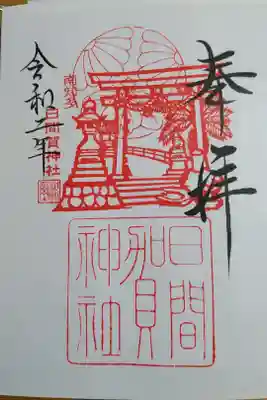 奉拝
南知多
日間賀神社
令和二年
日間
賀
神社